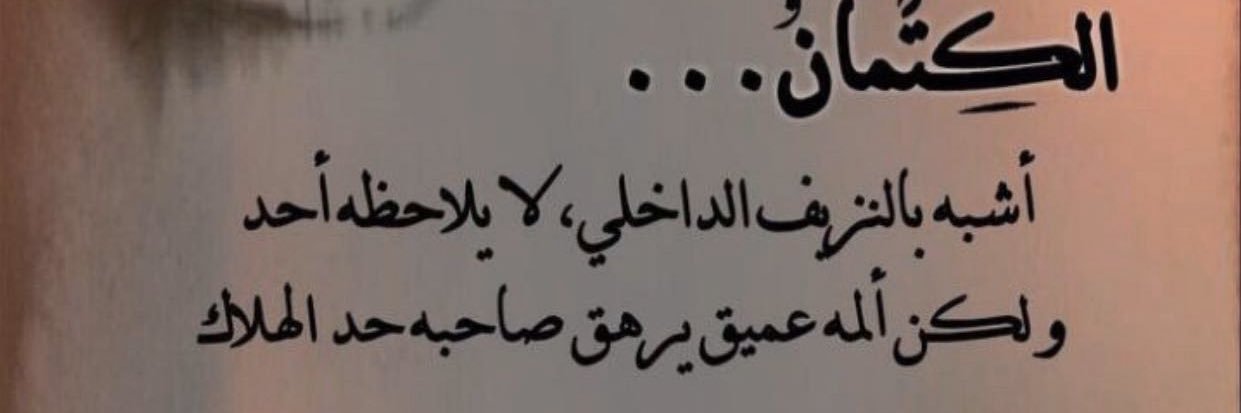 الكِتُمانُ...
أشبه بالنزيف الداخلي، لا يلاحظه أحد
ولكن ألمه عميق يرهق صاحبه حد الهلاك